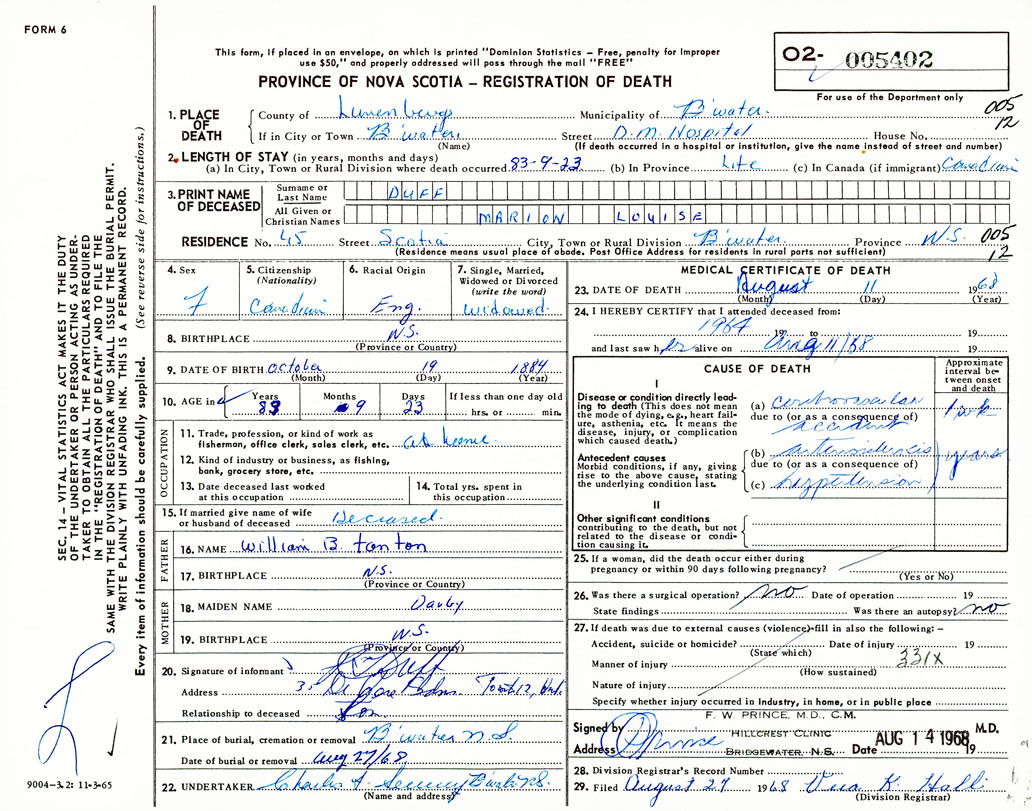 FORM 6
This form, if placed in an envelope, on which is printed "Dominion Statistics – Free, penalty for improper
use $50," and properly addressed will pass through the mail "FREE"
PROVINCE OF NOVA SCOTIA – REGISTRATION OF DEATH
O2- 005402
For use of the Department only
005
12
1. PLACE OF DEATH
County of Lunenburg Municipality of B'water.
If in City or Town B'water, Street D.M. Hospital House No.
(Name) (If death occurred in a hospital or institution, give the name instead of street and number)
2. LENGTH OF STAY (in years, months and days)
(a) In City, Town or Rural Division where death occurred 83-9-23 (b) In Province Life (c) In Canada (if immigrant) Canadian
3. PRINT NAME OF DECEASED
Surname or Last Name DUFF
All Given or Christian Names MARION LOUISE
RESIDENCE No. 45 Street Scotia City, Town or Rural Division B'water. Province N.S. 005
(Residence means usual place of abode. Post Office Address for residents in rural parts not sufficient) 12
4. Sex
F
5. Citizenship
(Nationality)
Canadian
6. Racial Origin
Eng.
7. Single, Married,
Widowed or Divorced
(write the word)
widowed.
8. BIRTHPLACE N.S.
(Province or Country)
9. DATE OF BIRTH October 19 1884
(Month) (Day) (Year)
10. AGE in
Years 83
Months 9
Days 23
If less than one day old
hrs. or min.
OCCUPATION
11. Trade, profession, or kind of work as
fishermen, office clerk, sales clerk, etc. at home.
12. Kind of industry or business, as fishing,
bank, grocery store, etc.
13. Date deceased last worked
at this occupation
14. Total yrs. spent in
this occupation
15. If married give name of wife
or husband of deceased Deceased.
FATHER
16. NAME William B. tanton
17. BIRTHPLACE N.S.
(Province or Country)
MOTHER
18. MAIDEN NAME
19. BIRTHPLACE N.S.
(Province or Country)
20. Signature of informant Duff
Address
Relationship to deceased Son
21. Place of burial, cremation or removal B'water N.S.
Date of burial or removal Aug 27/68
22. UNDERTAKER Charles
(Name and address)
MEDICAL CERTIFICATE OF DEATH
23. DATE OF DEATH August 11 1968
(Month) (Day) (Year)
24. I HEREBY CERTIFY that I attended deceased from:
1964 19 to 19
and last saw her alive on Aug 11/68 19
CAUSE OF DEATH
Approximate
interval be-
tween onset
and death
I
Disease or condition directly lead-
ing to death (This does not mean
the mode of dying, e.g., heart fail-
ure, asthenia, etc. It means the
disease, injury, or complication
which caused death.)
(a) cerebrovascular 1 wk
due to (or as a consequence of)
accident
Antecedent causes
Morbid conditions, if any, giving
rise to the above cause, stating
the underlying condition last.
(b) arteriosclerosis years
due to (or as a consequence of)
(c) hypertension
II
Other significant conditions
contributing to the death, but not
related to the disease or condi-
tion causing it.
25. If a woman, did the death occur either during
pregnancy or within 90 days following pregnancy?
(Yes or No)
26. Was there a surgical operation? no Date of operation 19
State findings Was there an autopsy? no
27. If death was due to external causes (violence) fill in also the following: –
Accident, suicide or homicide? Date of injury 19
(State which) 331X
Manner of injury
(How sustained)
Nature of injury
Specify whether injury occurred in Industry, in home, or in public place
F. W. PRINCE, M.D., C.M.
Signed by Prince M.D.
HILLCREST CLINIC
Address BRIDGEWATER, N.S. Date AUG 14 1968 19
28. Division Registrar's Record Number
29. Filed August 27 1968 K. Hall
(Division Registrar)
SEC. 14 – VITAL STATISTICS ACT MAKES IT THE DUTY
OF THE UNDERTAKER OR PERSON ACTING AS UNDER-
TAKER TO OBTAIN ALL THE PARTICULARS REQUIRED
IN THE "REGISTRATION OF DEATH" AND TO FILE THE
SAME WITH THE DIVISION REGISTRAR WHO SHALL ISSUE THE BURIAL PERMIT.
WRITE PLAINLY WITH UNFADING INK. THIS IS A PERMANENT RECORD.
Every item of information should be carefully supplied. (See reverse side for instructions.)
9004-3.2: 11-3-65